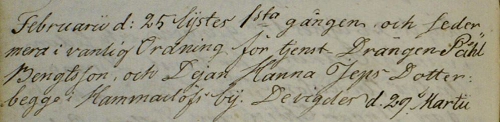 Februarii d: 25 lijstes 1sta gången, och seder
mera i vanlig Ordning för tjenst Drängen Påhl
Bengtsson, och Pijan Hanna Jens Dotter
begge i Hammarlöfs bÿ. Devigdes d. 29 Martii